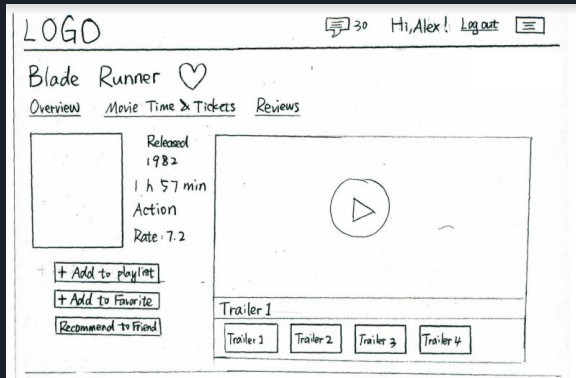 LOGO 30 Hi, Alex! Log out
Blade Runner
Overview Movie Time & Tickets Reviews
Released
1982
1 h 57 min
Action
Rate: 7.2
+ Add to playlist
+ Add to Favorite
Recommend to Friend
Trailer 1
Trailer 1 Trailer 2 Trailer 3 Trailer 4